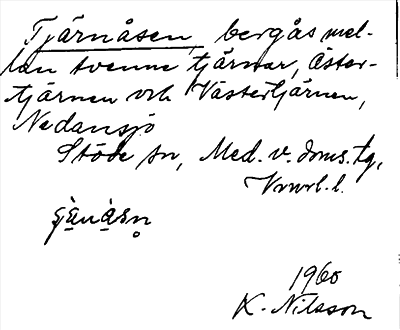 Tjärnåsen, bergås mel-
lan tvenne tjärnar, Öster-
tjärnen och Västertjärnen,
Nedansjö
Stöde sn, Med. v. doms. tg,
l.
1960
K. Nilsson